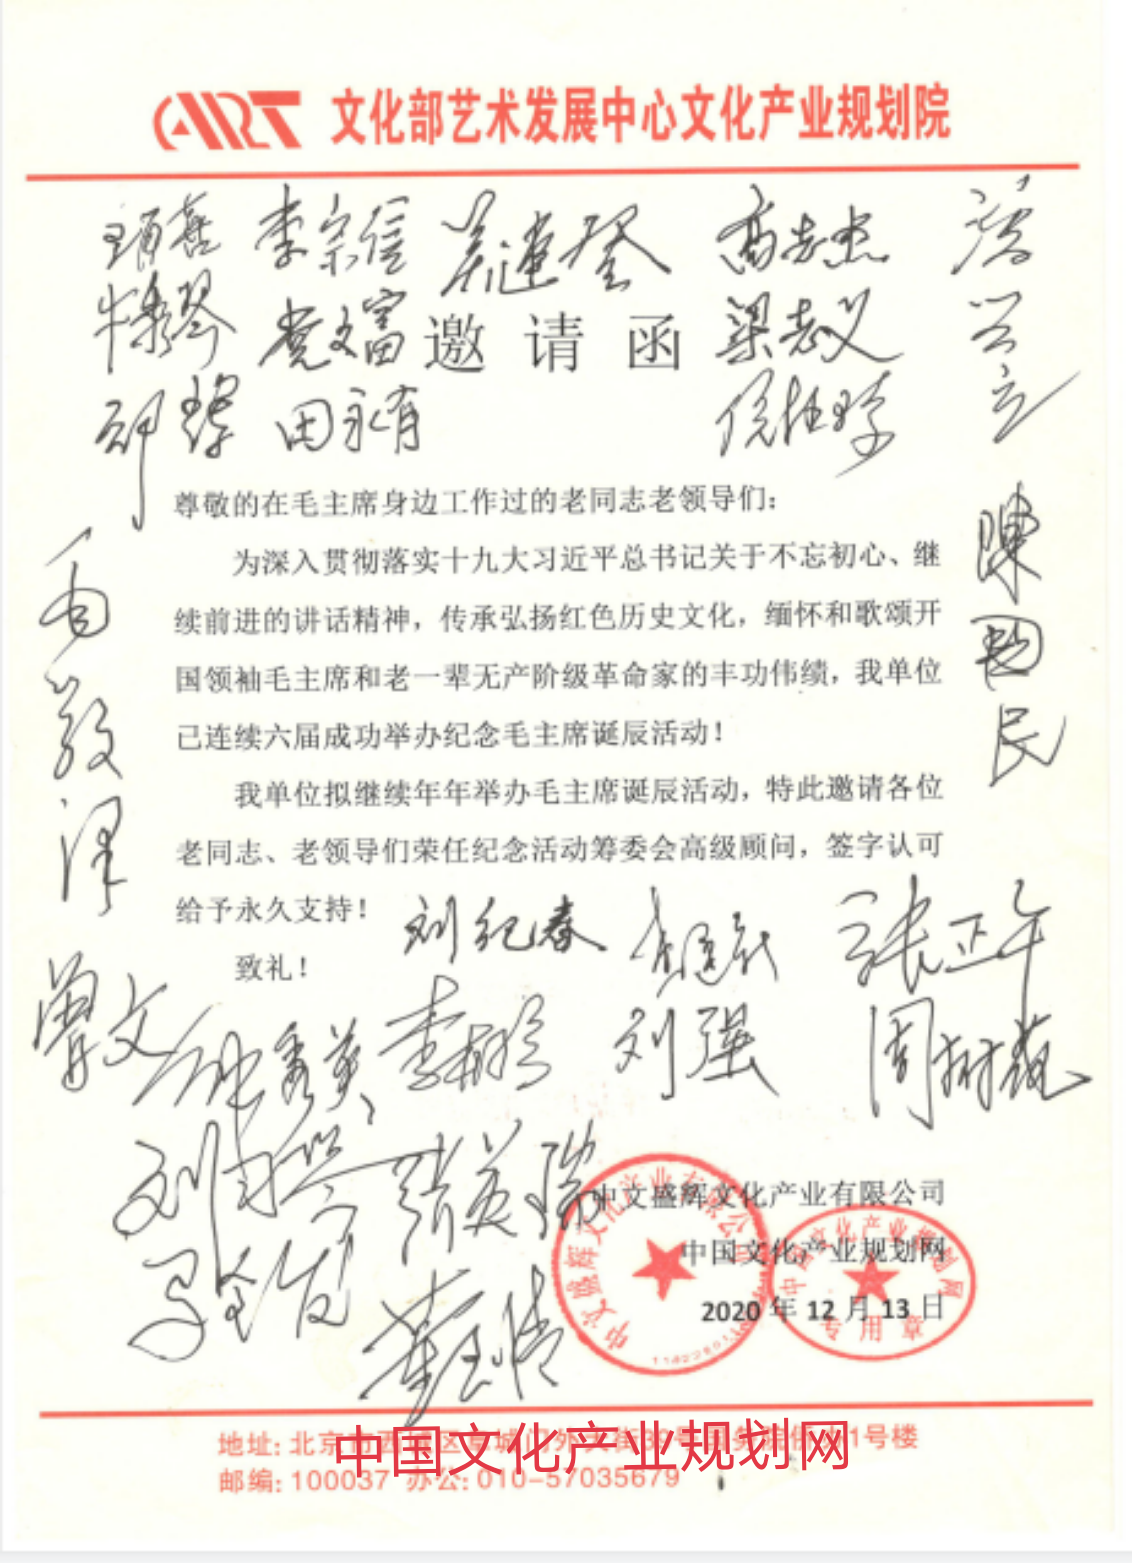 ART 文化部艺术发展中心文化产业规划院
李宗信
高志杰
党文富
梁志义
田永有
邀请函
尊敬的在毛主席身边工作过的老同志老领导们：
为深入贯彻落实十九大习近平总书记关于不忘初心、继
续前进的讲话精神，传承弘扬红色历史文化，缅怀和歌颂开
国领袖毛主席和老一辈无产阶级革命家的丰功伟绩，我单位
已连续六届成功举办纪念毛主席诞辰活动！
我单位拟继续年年举办毛主席诞辰活动，特此邀请各位
老同志、老领导们荣任纪念活动筹委会高级顾问，签字认可
给予永久支持！
致礼！
陳国民
刘纪春
张正午
曾文
钟秀英
刘强
张英瑞
中文盛辉文化产业有限公司
中国文化产业规划网
2020 年 12 月 13 日
中文盛辉文化产业有限公司
中国文化产业规划网
专用章
地址：北京市西城区
1号楼
中国文化产业规划网
邮编：100037 办公：010-57035679